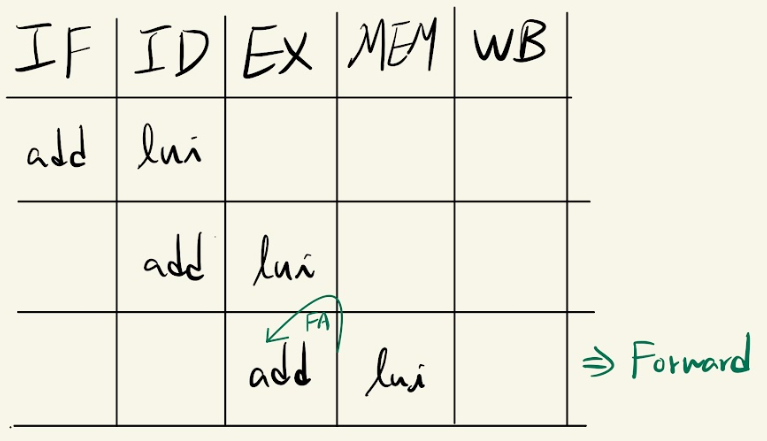 IF ID EX MEM WB
add lui
add lui
FA
add lui ⇒ Forward